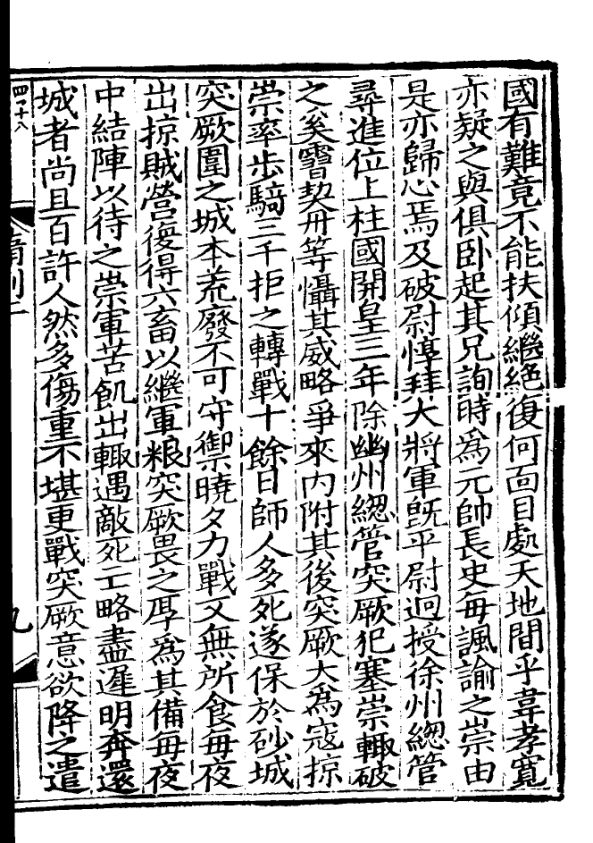 國有難竟不能扶傾繼絶復何面目處天地間乎韋孝寬
亦疑之與俱卧起其兄詢時爲元帥長史每諷諭之崇由
是亦歸心焉及破尉惇拜大將軍旣平尉迥授徐州緫管
尋進位上柱國開皇三年除幽州緫管突厥犯塞崇輙破
之奚霫契丹等懾其威略爭來内附其後突厥大為寇掠
崇率步騎三千拒之轉戰十餘日師人多死遂保於砂城
突厥圍之城本荒廢不可守禦曉夕力戰又無所食每夜
出掠賊營復得六畜以繼軍粮突厥畏之厚爲其備每夜
中結陣以待之崇軍苦飢出輙遇敵死亡略盡遲明奔還
城者尚且百許人然多傷重不堪更戰突厥意欲降之遣
四十八
九